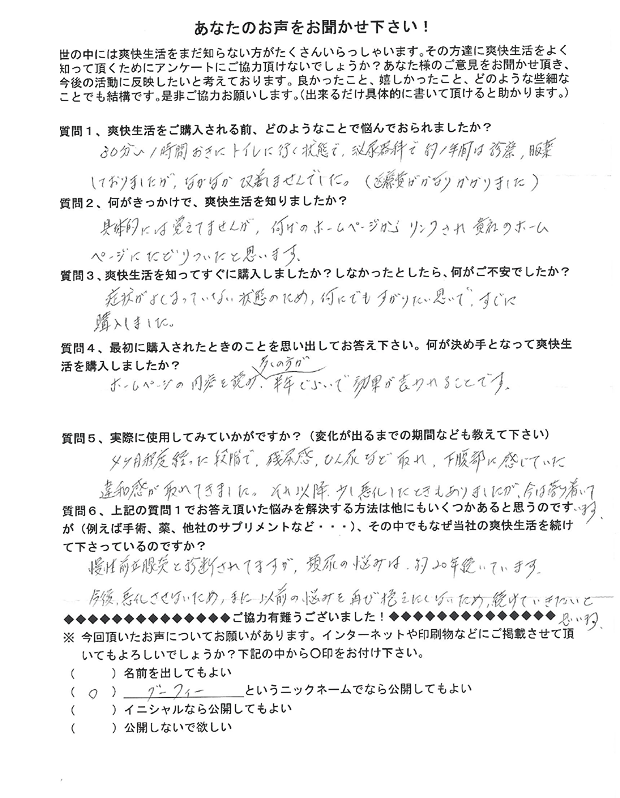 あなたのお声をお聞かせ下さい！
世の中には爽快生活をまだ知らない方がたくさんいらっしゃいます。その方達に爽快生活をよく
知って頂くためにアンケートにご協力頂けないでしょうか？あなた様のご意見をお聞かせ頂き、
今後の活動に反映したいと考えております。良かったこと、嬉しかったこと、どのような些細な
ことでも結構です。是非ご協力お願いします。（出来るだけ具体的に書いて頂けると助かります。）
質問１、爽快生活をご購入される前、どのようなことで悩んでおられましたか？
30分〜1時間おきにトイレに行く状態で、泌尿器科で約1年間は診察、服薬
しておりましたが、なかなか改善しませんでした。（医療費がかなりかかりました）
質問２、何がきっかけで、爽快生活を知りましたか？
具体的には覚えてませんが、何かのホームページからリンクされ貴社のホーム
ページにたどりついたと思います。
質問３、爽快生活を知ってすぐに購入しましたか？しなかったとしたら、何がご不安でしたか？
症状がよくなっていない状態のため、何にでもすがりたい思いで、すぐに
購入しました。
質問４、最初に購入されたときのことを思い出してお答え下さい。何が決め手となって爽快生
活を購入しましたか？
多くの方が
ホームページの内容を読み、半年ぐらいで効果が表われることです。
質問５、実際に使用してみていかがですか？（変化が出るまでの期間なども教えて下さい）
4ヶ月程度経った段階で、残尿感、ひん尿など取れ、下腹部に感じていた
違和感が取れてきました。それ以降、少し悪化したときもありましたが、今は落ち着いて
います。
質問６、上記の質問１でお答え頂いた悩みを解決する方法は他にもいくつかあると思うのです
が（例えば手術、薬、他社のサプリメントなど・・・）、その中でもなぜ当社の爽快生活を続け
て下さっているのですか？
慢性前立腺炎と診断されてますが、頻尿の悩みは、約20年続いています。
今後、悪化させないため、また以前の悩みを再び控えにしないため、続けていきたいと
思います。
◆◆◆◆◆◆◆◆◆◆◆◆◆◆ご協力有難うございました！◆◆◆◆◆◆◆◆◆◆◆◆◆◆
※ 今回頂いたお声についてお願いがあります。インターネットや印刷物などにご掲載させて頂
いてもよろしいでしょうか？下記の中から〇印をお付け下さい。
（　　）名前を出してもよい
（ 〇 ）グーフィーというニックネームでなら公開してもよい
（　　）イニシャルなら公開してもよい
（　　）公開しないで欲しい